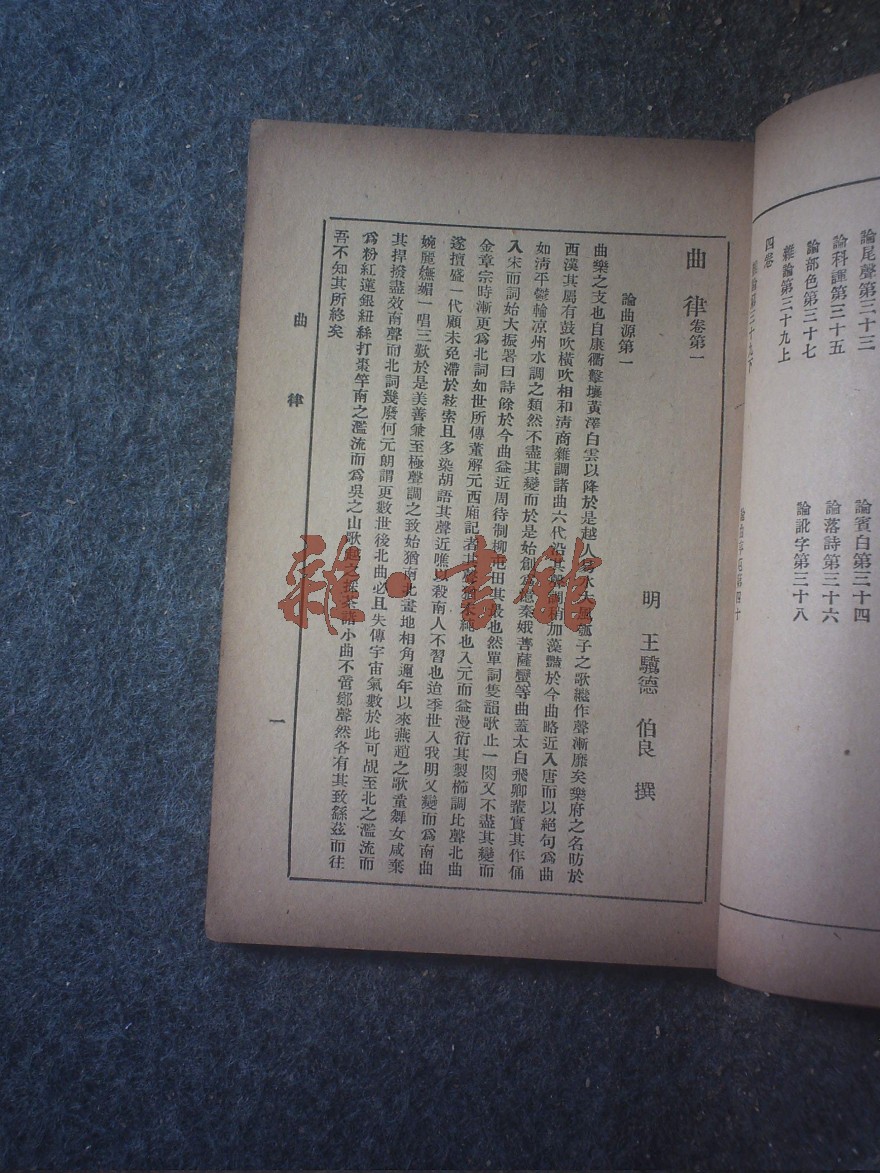 論尾聲第三十三
論賓白第三十四
論科諢第三十五
論落詩第三十六
論部色第三十七
論訛字第三十八
雜論第三十九上
四卷
雜論第三十九下
曲律卷第一
明 王驥德 伯良 撰
論曲源第一
曲樂之支也自康衢擊壤黃澤白雲以降於是越人
之歌繼作聲漸靡矣樂府之名昉於
西漢其屬有鼓吹橫吹相和清商雜調諸曲六代沿其聲調稍加藻豔於今曲略近入唐而以絕句爲曲
如清平鬱輪涼州水調之類然不盡其變而於是始創爲憶秦娥菩薩蠻等曲蓋太白飛卿輩實其作俑
入宋而詞始大振署曰詩餘於今曲益近周待制柳屯田其最也然單詞隻韻歌止一闋又不盡其變而
金章宗時漸更爲北詞如世所傳董解元西廂記者其聲猶未純也入元而益漫衍其製櫛調比聲北曲
遂擅盛一代顧未免滯於絃索且多染胡語其聲近噍以殺南人不習也迨季世入我明又變而爲南曲
婉麗嫵媚一唱三歎於是美善兼至極聲調之致始猶南北畫地相角邇年以來燕趙之歌童舞女咸棄
其捍撥盡效南聲而北詞幾廢何元朗謂更數世後北曲必且失傳宇宙氣數於此可覘至北之濫流而
爲粉紅蓮銀紐絲打棗竿南之濫流而爲吳之山歌越之採茶諸小曲不啻鄭聲然各有其致繇茲而往
吾不知其所終矣
曲律
一
雜·書館